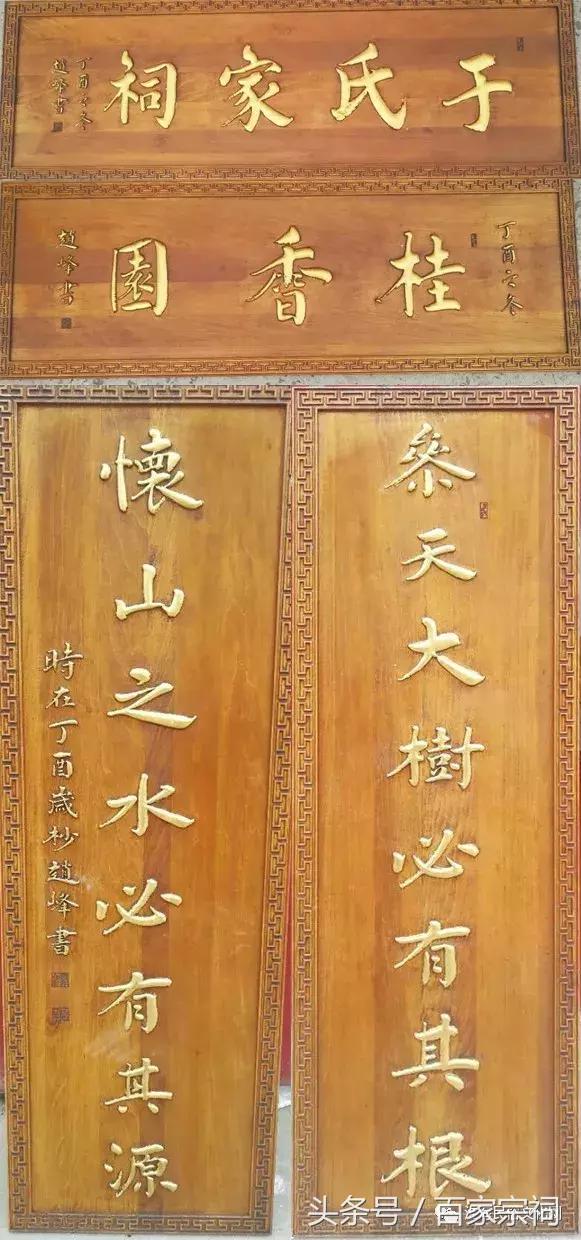 于氏家祠
丁酉之冬
趙峰書
丁酉之冬
桂香園
趙峰書
參天大樹必有其根
懷山之水必有其源
時在丁酉歲杪趙峰書
头条号／百家宗祠